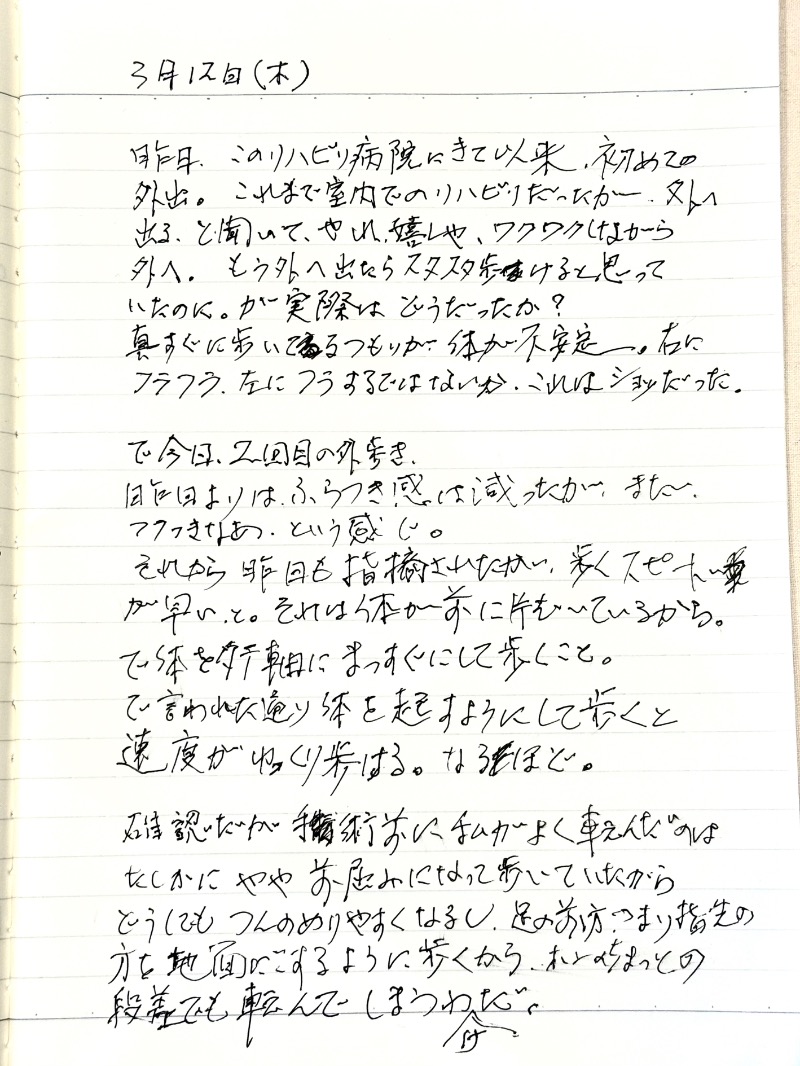 3月12日(木)
昨日、このリハビリ病院にきて以来、初めての
外出。これまで室内でのリハビリだったが、外へ
出る、と聞いて、やれ嬉しや、ワクワクしながら
外へ。もう外へ出たらスタスタ歩けると思って
いたのに。が実際はどうだったか?
真すぐに歩いてるつもりが体が不安定。右に
フラフラ、左にフラするではないか、これはショッだった。
で今日、2回目の外歩き、
昨日よりは、ふらつき感は減ったが、まだ、
フラつきなあ、という感じ。
それから昨日も指摘されたが、歩くスピード
が早いと。それは体が前に片むいているから。
で体をタテ軸にまっすぐにして歩くこと。
で言われた通り体を起すようにして歩くと
速度がゆっくり歩ける。なるほど。
確認だが手術前に私がよく転んだのは
たしかにやや前屈みになって歩いていたから
どうしてもつんのめりやすくなるし、足の前方、つまり指先の
方を地面にこするように歩くから、ちょっとの
段差でも転んでしまうわだ。
け